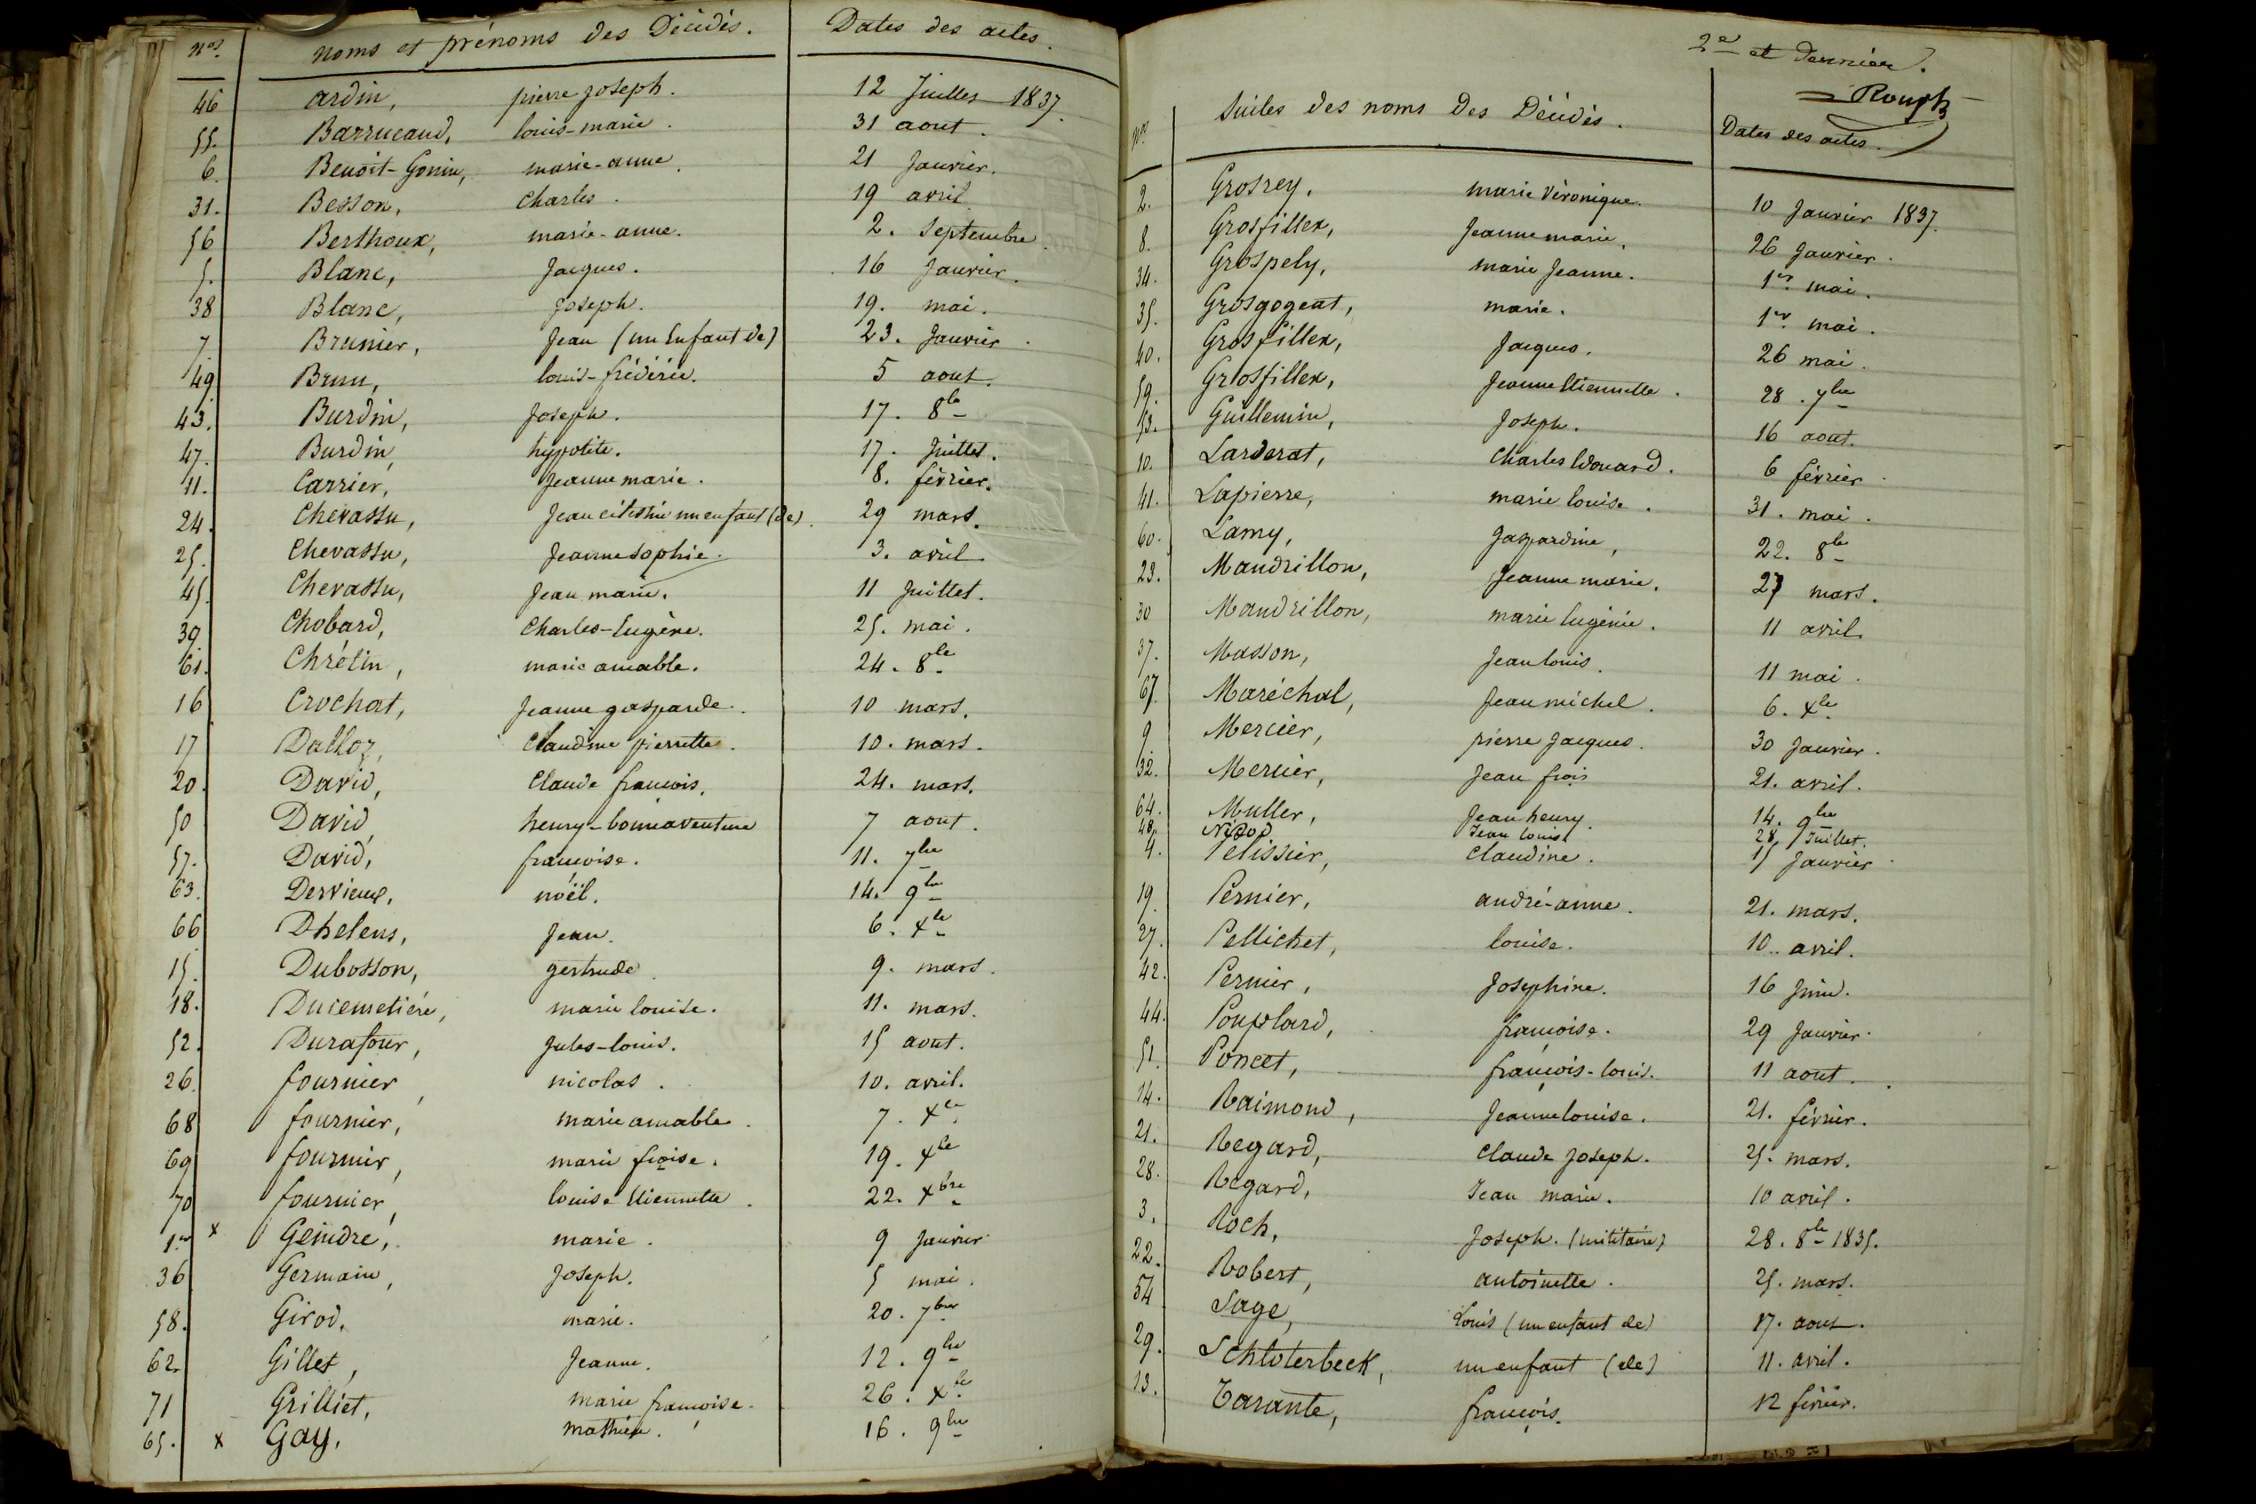 nos. noms et prénoms des Décédés. Dates des actes.
46 ardin, pierre Joseph. 12 Juillet 1837.
55. Barrucand, louis-marie. 31 aout.
6. Benoit-Gonin, marie-anne. 21 Janvier.
31. Besson, Charles. 19 avril.
56 Berthoux, marie-anne. 2. Septembre.
5. Blanc, Jacques. 16 Janvier.
38 Blanc, Joseph. 19. mai.
7. Brunier, Jean (un Enfant de) 23. Janvier.
49. Brun, louis-frédéric. 5 aout.
43. Burdin, Joseph. 17. 8be
47. Burdin, hypolite. 17. Juillet.
11. Carrier, Jeanne marie. 8. février.
24. Chevassu, Jean célestin un enfant (de). 29 mars.
25. Chevassu, Jeanne Sophie. 3. avril
45. Chevassu, Jean marie. 11 Juillet.
39. Chobard, Charles-Eugène. 25. mai.
61. Chrétin, marie amable. 24. 8be
16 Crochat, Jeanne gasparde. 10 mars.
17 Dalloz, Claudine pierrette. 10. mars.
20. David, Claude francois. 24. mars.
50 David, henry-bonnaventure 7 aout.
57. David, françoise. 11. 7bre
63. Dervieux, noël. 14. 9bre
66 Dhelens, Jean. 6. Xbe
15. Dubosson, gertrude 9. mars.
18. Ducemetiére, marie louise. 11. mars.
52. Durafour, Jules-louis. 15 aout.
26. fournier, nicolas. 10. avril.
68 fournier, marie amable. 7. Xbe
69 fournier, marie fçoise. 19. Xbe
70 fournier, louise Etiennette. 22. Xbre
1er x Geindre, marie. 9 Janvier
36 Germain, Joseph. 5 mai.
58. Girod, marie. 20. 7bre
62. Gillet, Jeanne. 12. 9bre
71 Grilliet, marie françoise. 26. Xbe
65. x Gay, mathieu. 16. 9bre
2e et dernier.
Rouph
nos. Suites des noms des Décédés. Dates des actes.
2. Grosrey, marie Véronique. 10 Janvier 1837.
8. Grosfillex, Jeanne marie. 26 Janvier.
34. Grospely, marie Jeanne. 1er mai.
35. Grosgogeat, marie. 1er mai.
40. Grosfillex, Jacques. 26 mai.
59. Grosfillex, Jeanne Etiennette. 28. 7bre
53. Guillemin, Joseph. 16 aout.
10. Larderat, Charles Edouard. 6 février.
41. Lapierre, marie louise. 31. mai.
60. Lamy, gaspardine, 22. 8be
23. Mandrillon, Jeanne marie. 27 mars.
30 Mandrillon, marie Eugénie. 11 avril.
37. Masson, Jean louis. 11 mai.
67. Maréchal, Jean michel. 6. Xbe
9 Mercier, pierre Jacques. 30 Janvier.
32. Mercier, Jean fçois 21. avril.
64. Muller, Jean henry. 14. 9bre
48. Nizod Jean louis 28. Juillet.
4. Pélissier, Claudine. 15 Janvier.
19. Pernier, andré-anne. 21. mars.
27. Pellichet, louise. 10. avril.
42. Pernier, Josephine. 16 Juin.
44. Pouplard, françoise. 29 Janvier.
51. Poncet, françois-louis. 11 aout.
14. Raimond, Jeanne louise. 21. février.
21. Regard, Claude Joseph. 25. mars.
28. Regard, Jean marie. 10 avril.
3. Roch, Joseph. (militaire) 28. 8be 1835.
22. Robert, antoinette. 25. mars.
54 Sage, Louis (un enfant de) 17. aout.
29. Schloterbeck, un enfant (de) 11. avril.
13. Tarante, françois. 12 février.